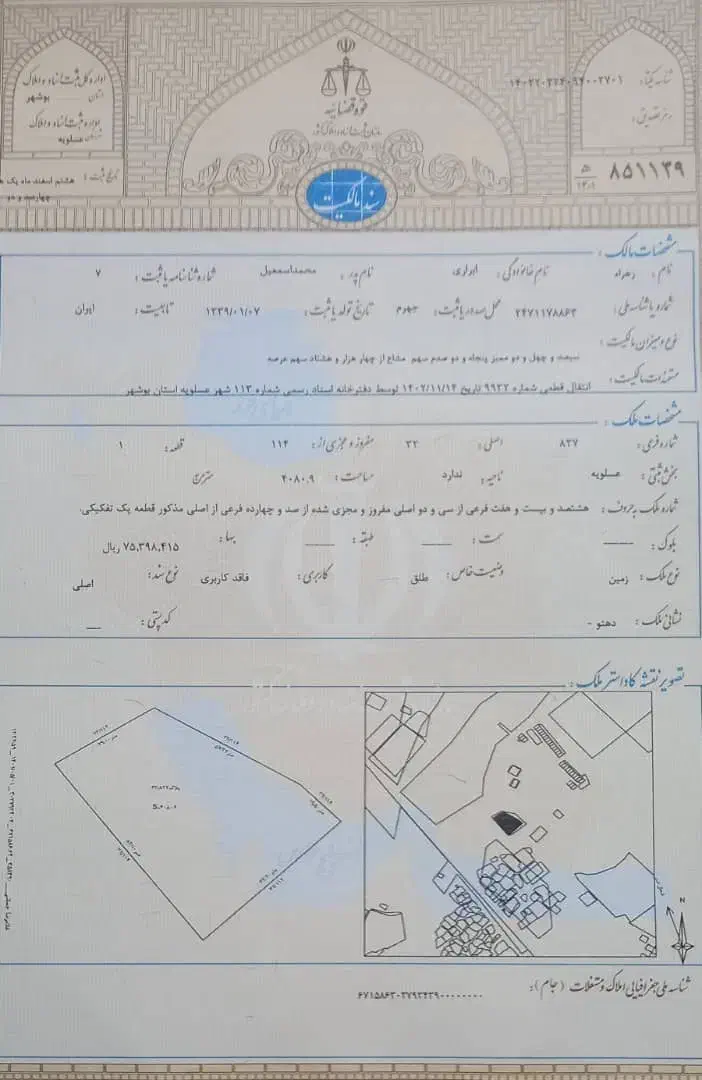 قوه قضائیه
سازمان ثبت اسناد و املاک کشور
اداره کل ثبت اسناد و املاک
استان بوشهر
اداره ثبت اسناد و املاک
عسلویه
تاریخ ثبت : هشتم اسفند ماه یک
چهارصد و دو
شناسه یکتا:
رمز تصدیق:
۸۵۱۱۳۹
سند مالکیت
مشخصات مالک :
نام : زهراء نام خانوادگی : ابرازی نام پدر : محمداسمعیل شماره شناسنامه یا ثبت : ۷
شماره یا شناسه ملی : ۲۴۷۱۱۷۸۸۶۳ محل صدور یا ثبت : جهرم تاریخ تولد یا ثبت : ۱۳۳۹/۰۱/۰۷ تابعیت : ایران
نوع و میزان مالکیت :
سیصد و چهل و دو ممیز پنجاه و دو صدم سهم مشاع از چهار هزار و هشتاد سهم عرصه
مستندات مالکیت : انتقال قطعی شماره ۹۹۳۲ تاریخ ۱۴۰۲/۱۱/۱۴ توسط دفترخانه اسناد رسمی شماره ۱۱۳ شهر عسلویه استان بوشهر
مشخصات ملک :
شماره فرعی : ۸۲۷ اصلی : ۳۲ مفروز و مجزی از : ۱۱۴ قطعه : ۱
بخش ثبتی : عسلویه ناحیه : ندارد مساحت : ۴۰۸۰.۹ مترمربع
شماره ملک به حروف : هشتصد و بیست و هفت فرعی از سی و دو اصلی مفروز و مجزی شده از صد و چهارده فرعی از اصلی مذکور قطعه یک تفکیکی.
بلوک : ____ سمت : ____ طبقه : ____ بها : ۷۵,۳۹۸,۴۱۵ ریال
نوع ملک : زمین وضعیت خاص : طلق کاربری : فاقد کاربری نوع سند : اصلی
نشانی ملک : دهنو - کدپستی : __
تصویر نقشه کاداستر ملک :
N
شناسه ملی جغرافیایی املاک و مستغلات (جام) :